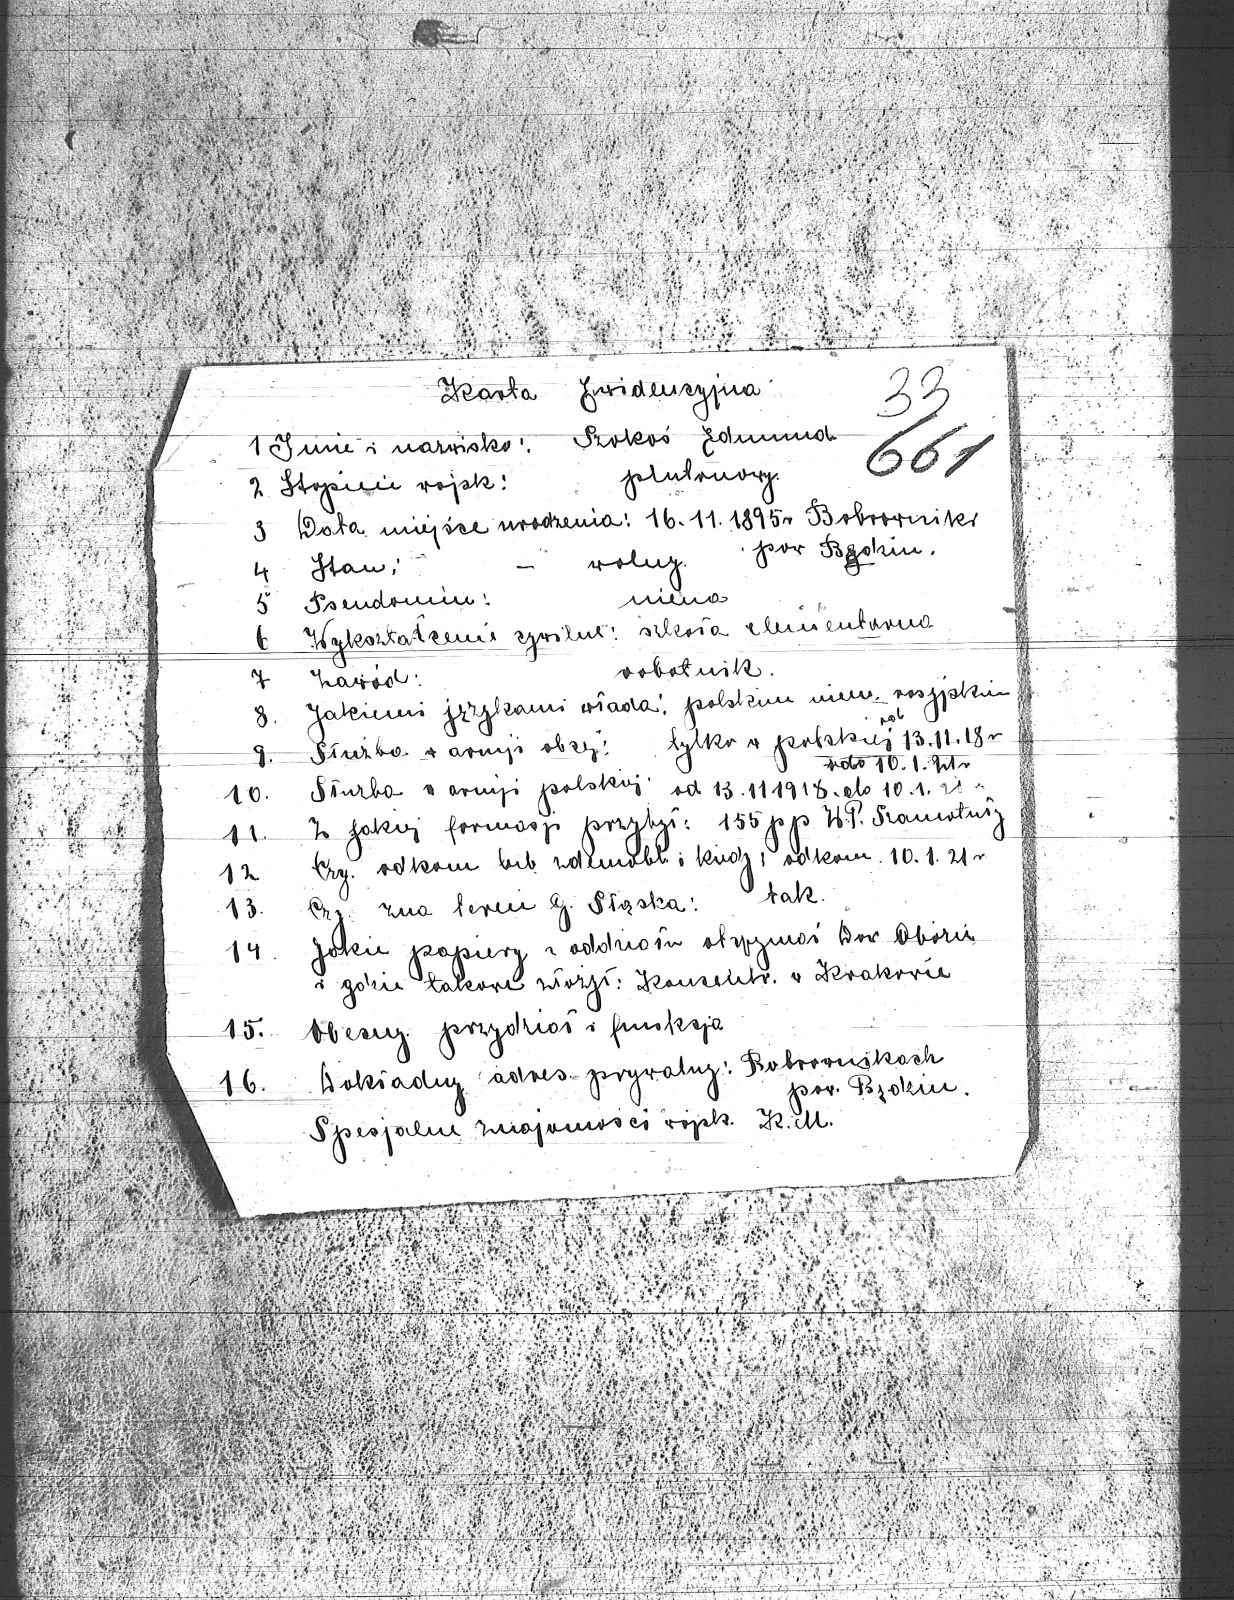 Karta Ewidencyjna
33
661
1 Imie i nazwisko: Szokoś Edmund
2 Stopień wojsk: plutonowy.
3 Data miejsce urodzenia: 16.11.1895r Bobrowniki
pow Będzin.
4 Stan: – wolny.
5 Pseudonim: niema
6 Wykształcenie cywilne: szkoła elementarna
7 Zawód: robotnik.
8. Jakiemi językami włada: polskim niem. rosyjskim
9. Służba w armji obcej: tylko w polskiej od 13.11.18r
do 10.1.21r
10. Służba w armji polskiej: od 13.11 1918. do 10.1.21 r
11. Z jakiej formacji przybył: 155 p p W.P. Szamotuły
12 Czy. odkom lub zdemobl i kiedy: odkom. 10.1.21r
13. Czy. zna teren G. Śląska: tak.
14 Jakie papiery z oddziału otrzymał Dow Obozu
i gdzie takowe złożył: w Krakowie
15. Obecny. przydział i funkcja
16. Dokładny adres. prywatny: Bobrownikach
pow. Będzin.
Specjalne znajomości wojsk. K.M.